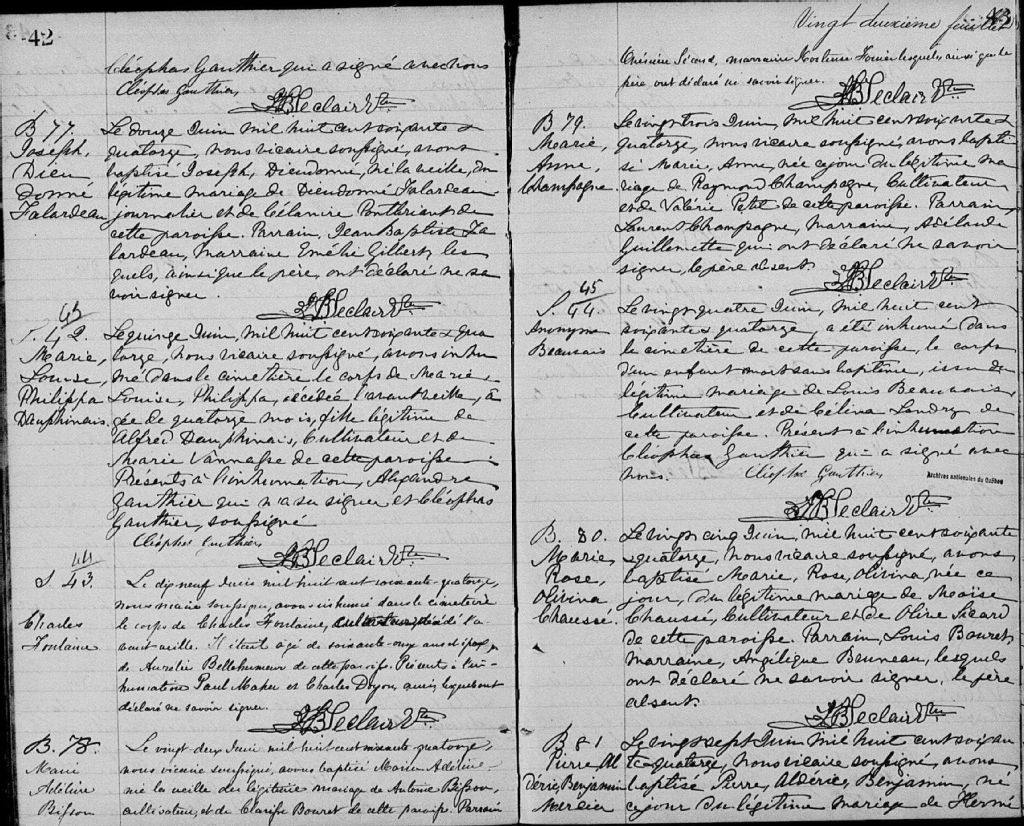 42
Cléophas Gauthier qui a signé avec nous
Cléophas Gauthier
JB Leclair Vtre
B 77.
Joseph,
Dieu
donné
Falardeau
Le douze Juin mil huit cent soixante &
quatorze, nous vicaire soussigné, avons
baptisé Joseph, Dieudonné, né la veille, du
légitime mariage de Dieudonné Falardeau
journalier et de Célanire Ponthriant de
cette paroisse. Parrain, Jean Baptiste Fa
lardeau, marraine Emélie Gilbert, les
quels, ainsi que le père, ont déclaré ne sa
voir signer.
JB Leclair Vtre
43
S. 42.
Marie,
Louise,
Philippa
Dauphinais
Le quinze Juin, mil huit cent soixante & qua
torze, nous vicaire soussigné, avons inhu
mé dans le cimetière le corps de Marie,
Louise, Philippa, décédée l'avant veille, â
gée de quatorze mois, fille légitime de
Alfred Dauphinais, Cultivateur et de
Marie Vannasse de cette paroisse.
Présents à l'inhumation, Alexandre
Gauthier qui n'a su signer et Cléophas
Gauthier, soussigné
Cléophas Gauthier
JB Leclair Vtre
44
S 43.
Charles
Fontaine
Le dix neuf Juin mil huit cent soixante-quatorze,
nous vicaire soussigné, avons inhumé dans le cimetière
le corps de Charles Fontaine, décédé l'a
vant veille. Il était âgé de soixante-onze ans et époux
de Aurélie Bellehumeur de cette paroisse. Présent à l'in
humation Paul Maher et Charles Doyon, lesquels ont
déclaré ne savoir signer.
JB Leclair Vtre
B. 78.
Marie
Adéline
Bisson
Le vingt-deux Juin mil huit cent soixante quatorze,
nous vicaire soussigné, avons baptisé Marie Adéline
née la veille du légitime mariage de Antoine Bisson,
cultivateur, et de Clarisse Bouret de cette paroisse. Parrain
Vingt deuxième feuillet
43
Onésime Sicard, marraine lesquels, ainsi que le
père ont déclaré ne savoir signer.
JB Leclair Vtre
B 79.
Marie,
Anne,
Champagne
Le vingt trois Juin, mil huit cent soixante &
quatorze, nous vicaire soussigné, avons bapti
sé Marie, Anne, née ce jour du légitime ma
riage de Raymond Champagne, Cultivateur
et de Valérie Petit de cette paroisse. Parrain,
Laurent Champagne, Marraine, Adélaide
Guillemette qui ont déclaré ne savoir
signer, le père absent.
JB Leclair Vtre
45
S. 44.
Anonyme
Beauvais
Le vingt quatre Juin, mil huit cent
soixante & quatorze, a été inhumé dans
le cimetière de cette paroisse, le corps
d'un enfant mort sans baptême, issu du
légitime mariage de Louis Beauvais
Cultivateur et de Célina Landry de
cette paroisse. Présent à l'inhumation
Cléophas Gauthier qui a signé avec
nous.
Cléophas Gauthier
Archives nationales du Québec
JB Leclair Vtre
B. 80.
Marie,
Rose,
Olivina
Chaussé.
Le vingt cinq Juin, mil huit cent soixante
& quatorze, nous vicaire soussigné, avons
baptisé Marie, Rose, Olivina, née ce
jour, du légitime mariage de Moise
Chaussé, Cultivateur et de Olive Sicard
de cette paroisse. Parrain, Louis Bouret,
marraine, Angélique Bruneau, lesquels
ont déclaré ne savoir signer, le père
absent.
JB Leclair Vtre
B 81
Pierre, Al
déric, Benjamin
Mercier
Le vingt sept Juin mil huit cent soixan
te quatorze, nous vicaire soussigné, avons
baptisé Pierre, Aldéric, Benjamin, né
ce jour du légitime mariage de Hermé